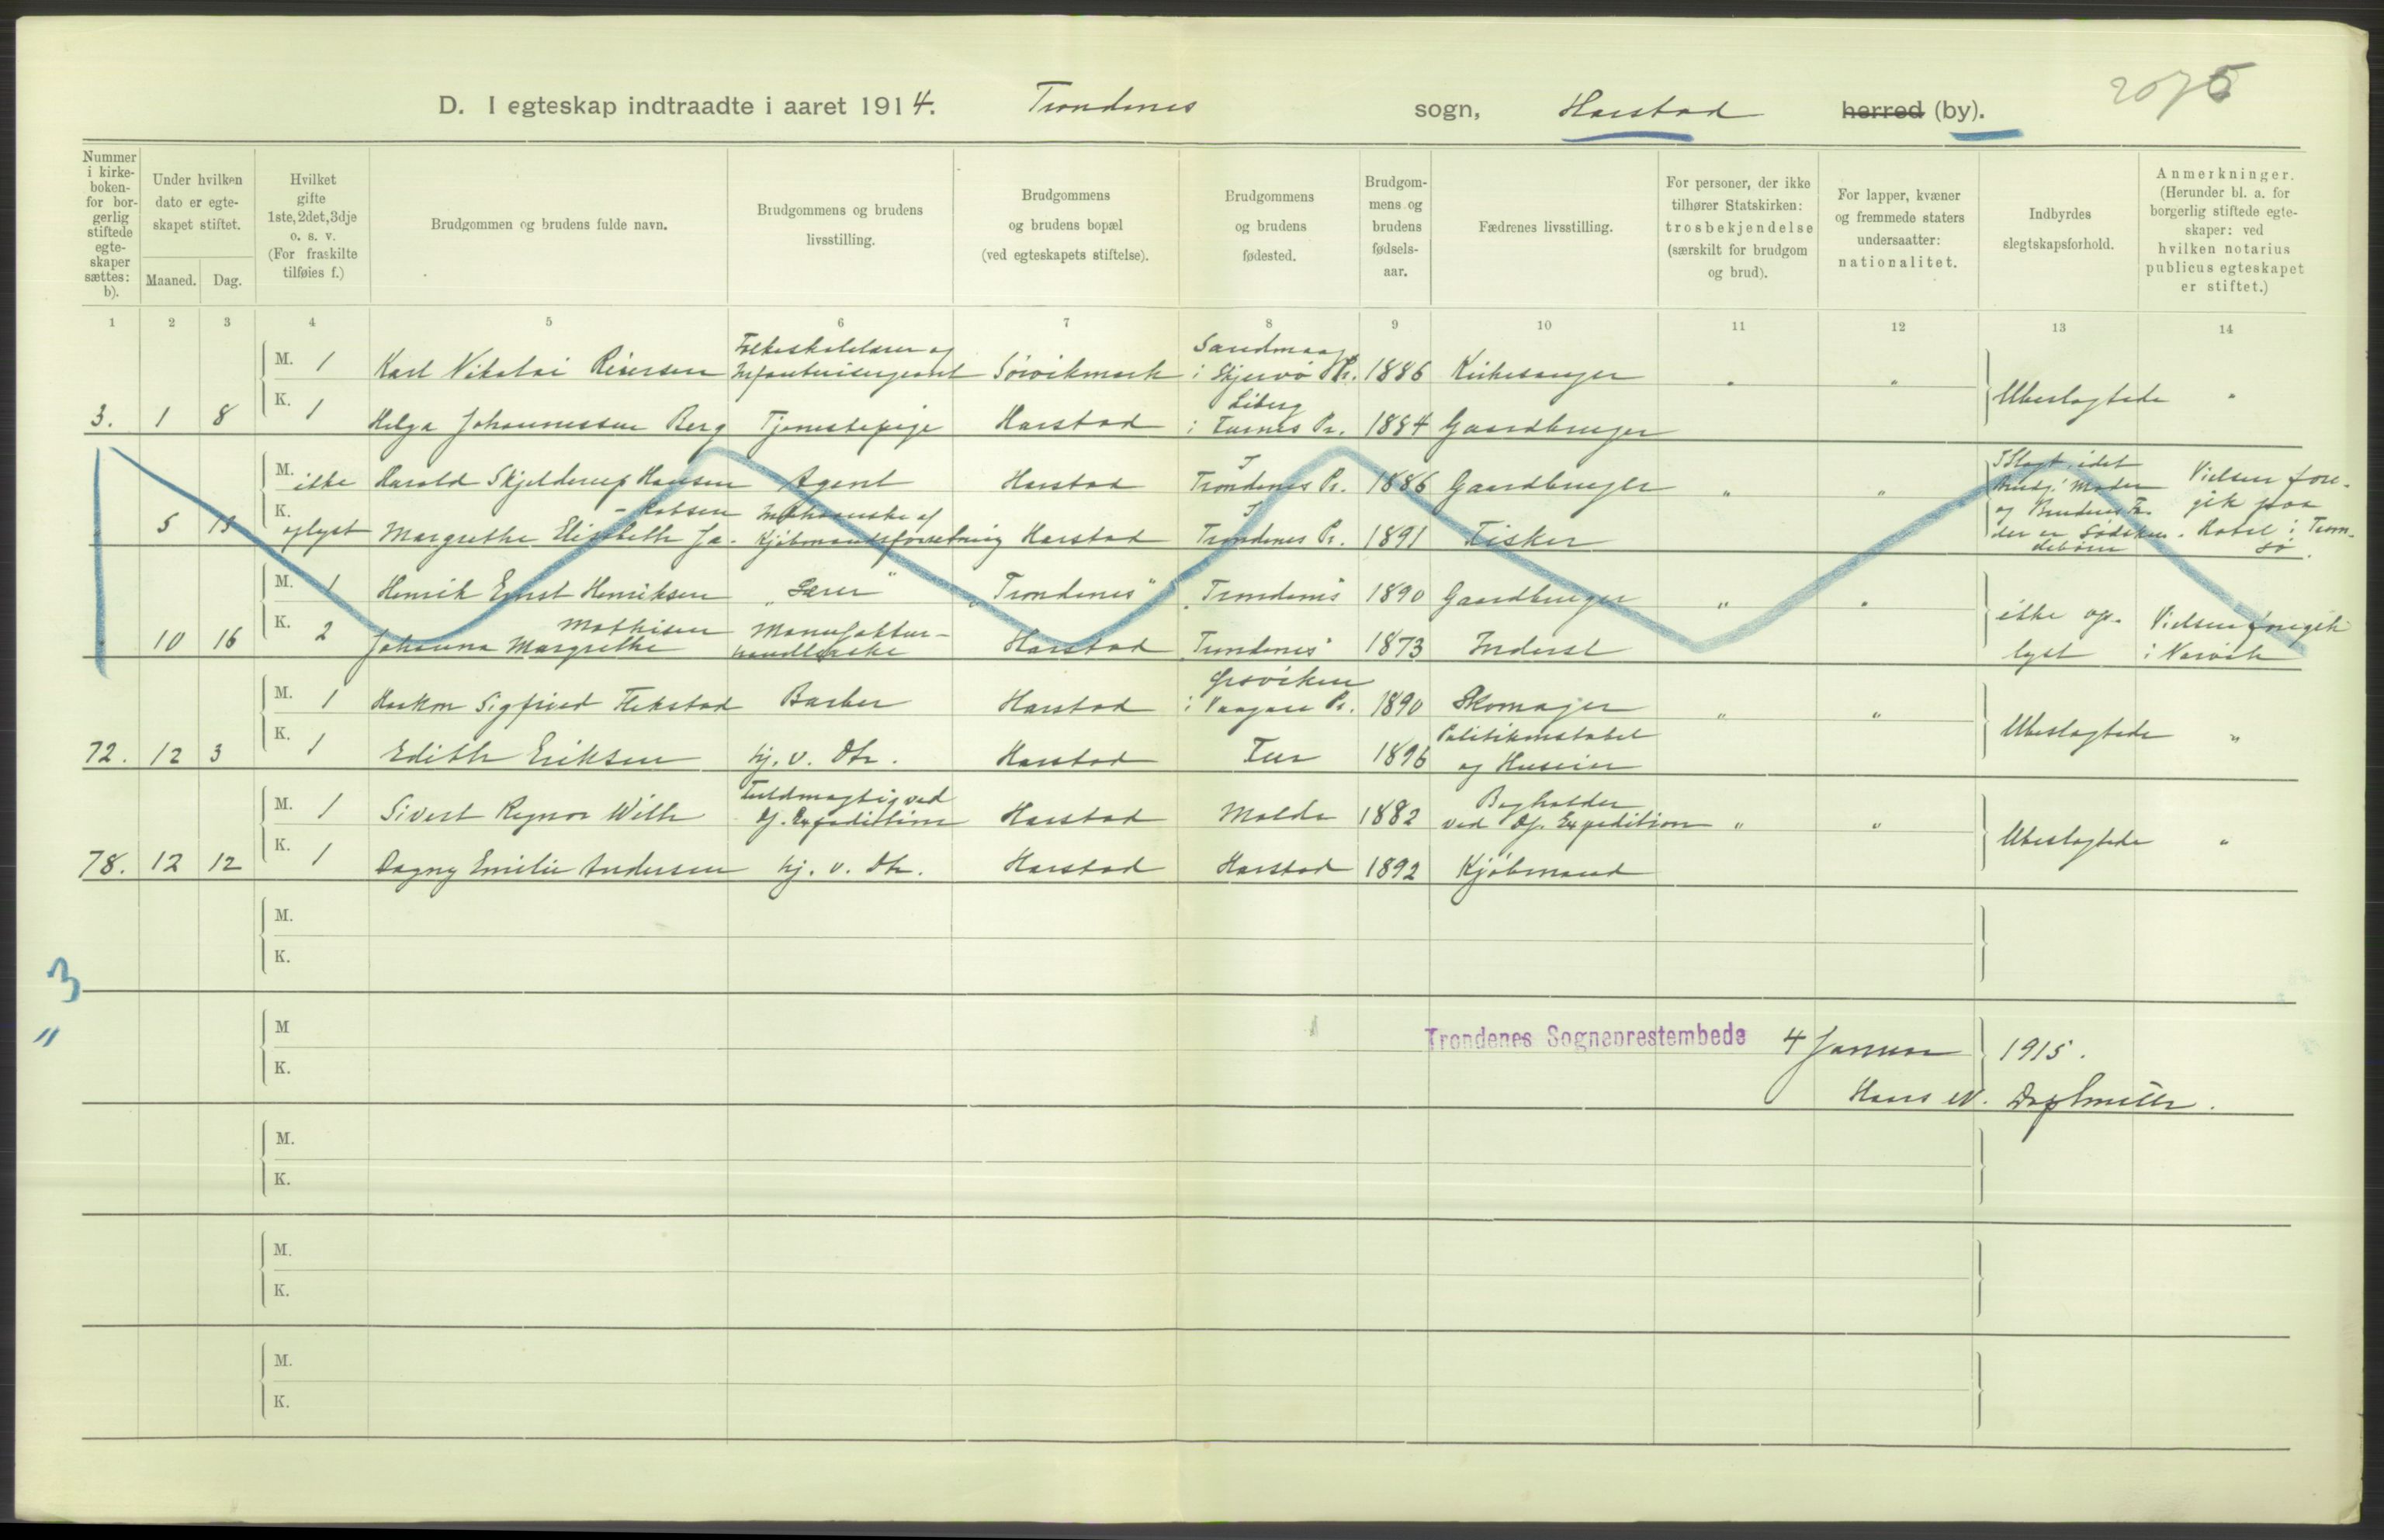 2075
D. I egteskap indtraadte i aaret 1914. Trondenes sogn, Harstad herred (by).
Nummer i kirke-boken- for bor-gerlig stiftede egte-skaper sættes: b).
Under hvilken dato er egte-skapet stiftet.
Maaned. Dag.
Hvilket gifte 1ste, 2det, 3dje o. s. v. (For fraskilte tilføies f.)
Brudgommen og brudens fulde navn.
Brudgommens og brudens livsstilling.
Brudgommens og brudens bopæl (ved egteskapets stiftelse).
Brudgommens og brudens fødested.
Brudgom-mens og brudens fødsels-aar.
Fædrenes livsstilling.
For personer, der ikke tilhører Statskirken: trosbekjendelse (særskilt for brudgom og brud).
For lapper, kvæner og fremmede staters undersaatter: nationalitet.
Indbyrdes slegtskapsforhold.
Anmerkninger. (Herunder bl. a. for borgerlig stiftede egte-skaper: ved hvilken notarius publicus egteskapet er stiftet.)
1 2 3 4 5 6 7 8 9 10 11 12 13 14
M. 1 Karl Nikolai Reiersen Folkeskolelærer og Infanterisergeant Sørvikmark i Skjervø Pr. 1886 Kirkesanger " "
3. 1 8 K. 1 Helga Johannessen Berg Tjenestepige Harstad Liberg i Pr. 1884 Gaardbruger Ubeslægtede "
M. ikke Harald Skjelderup Hansen Agent Harstad I Trondenes Pr. 1886 Gaardbruger " " I Slægt, idet Brudg. Moder og Brudens Fa-der er Sødsken-debørn Vielsen fore-gik paa Hotel i Trom-sø.
5 13 K. oplyst Margrethe Elisabeth Ja-kobsen Indehaverske af Kjøbmandsforretning Harstad I Trondenes Pr. 1891 Fisker
M. 1 Henrik Ernst Henriksen "Lærer" "Trondenes" "Trondenes 1890 Gaardbruger " "
10 16 K. 2 Johanna Margrethe Mathisen Manufaktur-handlerske Harstad Trondenes 1873 Inderst ikke op-lyst Vielsen foregik i Narvik
M. 1 Haakon Sigfried Flekstad Barber Harstad i Vaagan Pr. 1890 Skomager " "
72. 12 3 K. 1 Edith Eriksen hj. v. Dtr. Harstad 1896 Politikonstabel og Huseier Ubeslægtede "
M. 1 Sivert Ragnor With Fuldmægtig ved D/. Expeditionen Harstad Molde 1882 Bogholder ved D/. Expedition " "
78. 12 12 K. 1 Dagny Emilie Andersen hj. v. Dtr. Harstad Harstad 1892 Kjøbmand Ubeslægtede "
M.
K.
3
M
"
K.
Trondenes Sogneprestembede 4 Januar 1915.
Hans N.
M.
K.
M.
K.
M.
K.